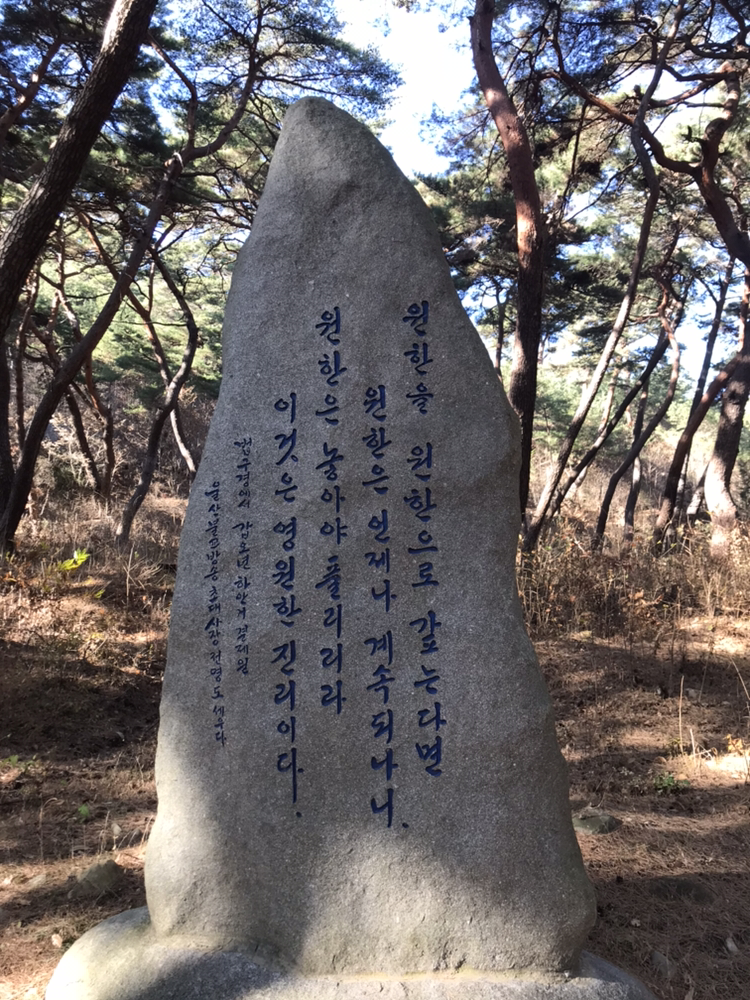 원한을 원한으로 갚는다면
원한은 언제나 계속되나니.
원한은 놓아야 풀리리라
이것은 영원한 진리이다.
법구경에서 갑오년 하안거 결제일
울산불교방송 초대사장 전명도 세우다